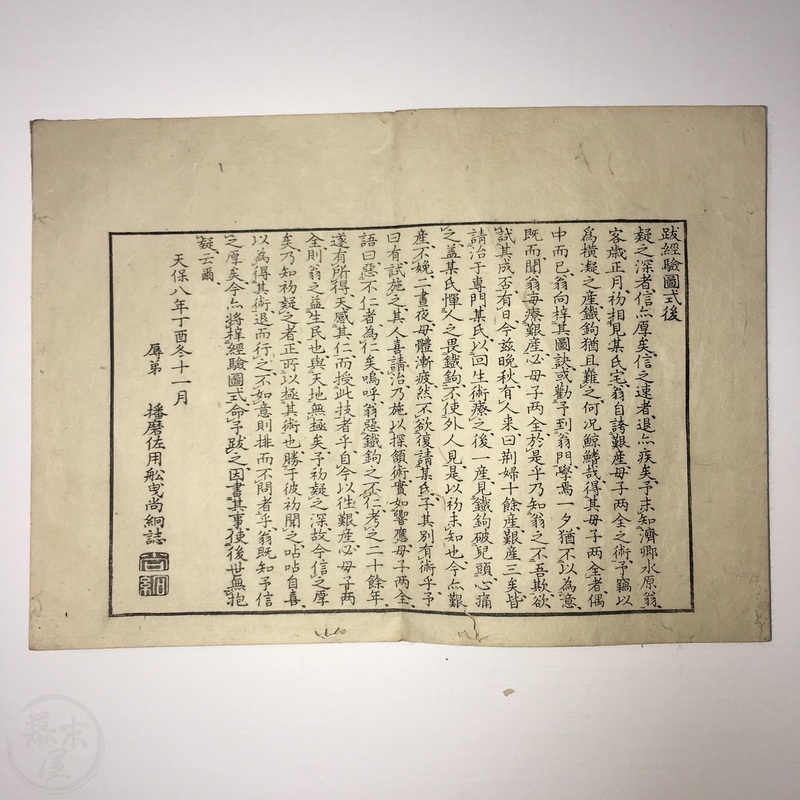 跋經驗圖式後
疑之深者信亦厚矣信之速者退亦疾矣予未知濟卿水原翁
客歳正月初相見某氏宅翁自誇艱産母子兩全之術予竊以
為横凝之産鐵鉤猶且難之何况鯨鰭哉得其母子兩全者偶
中而已翁向梓其圖訣或勸予到翁門學焉一夕猶不以為意
既而聞翁毎療艱産必母子两全於是乎乃知翁之不吾欺欲
試其成否有日今茲晩秋有人来曰荆婦十餘産艱産三矣皆
請治于專門某氏以回生術療之後一産見鐵鉤破兒頭心痛
之益某氏憚人之畏鐵鉤不使外人見是以初未知也今亦艱
産不娩二晝夜母體漸疲然不欲復請某氏子其別有術乎予
曰有試施之其人喜請治乃施以探頷術實如響應母子兩全
語曰惡不仁者為仁矣嗚呼翁惡鐵鉤之不仁考之二十餘年
遂有所得天感其仁而授此技者乎自今以往艱産必母子兩
全則翁之益生民也與天地無極矣予初疑之深故今信之厚
矣乃知初疑之者正所以極其術也勝于彼初聞之呫呫自喜
以為得其術退而行之不如意則排而不問者乎翁既知予信
之厚矣今亦將梓經驗圖式命予跋之因書其事使後世無抱
疑云爾
天保八年丁酉冬十一月
辱弟 播磨佐用舩曳尚絅誌
尚絅
幕末屋